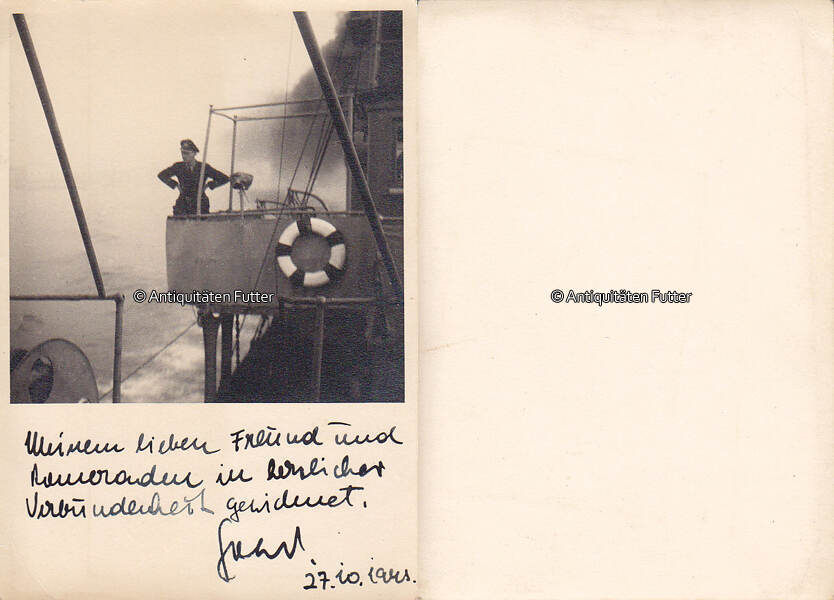 © Antiquitäten Futter
© Antiquitäten Futter
Meinem lieben Freund und
Kameraden in herzlicher
Verbundenheit gewidmet.
27.10.1945.